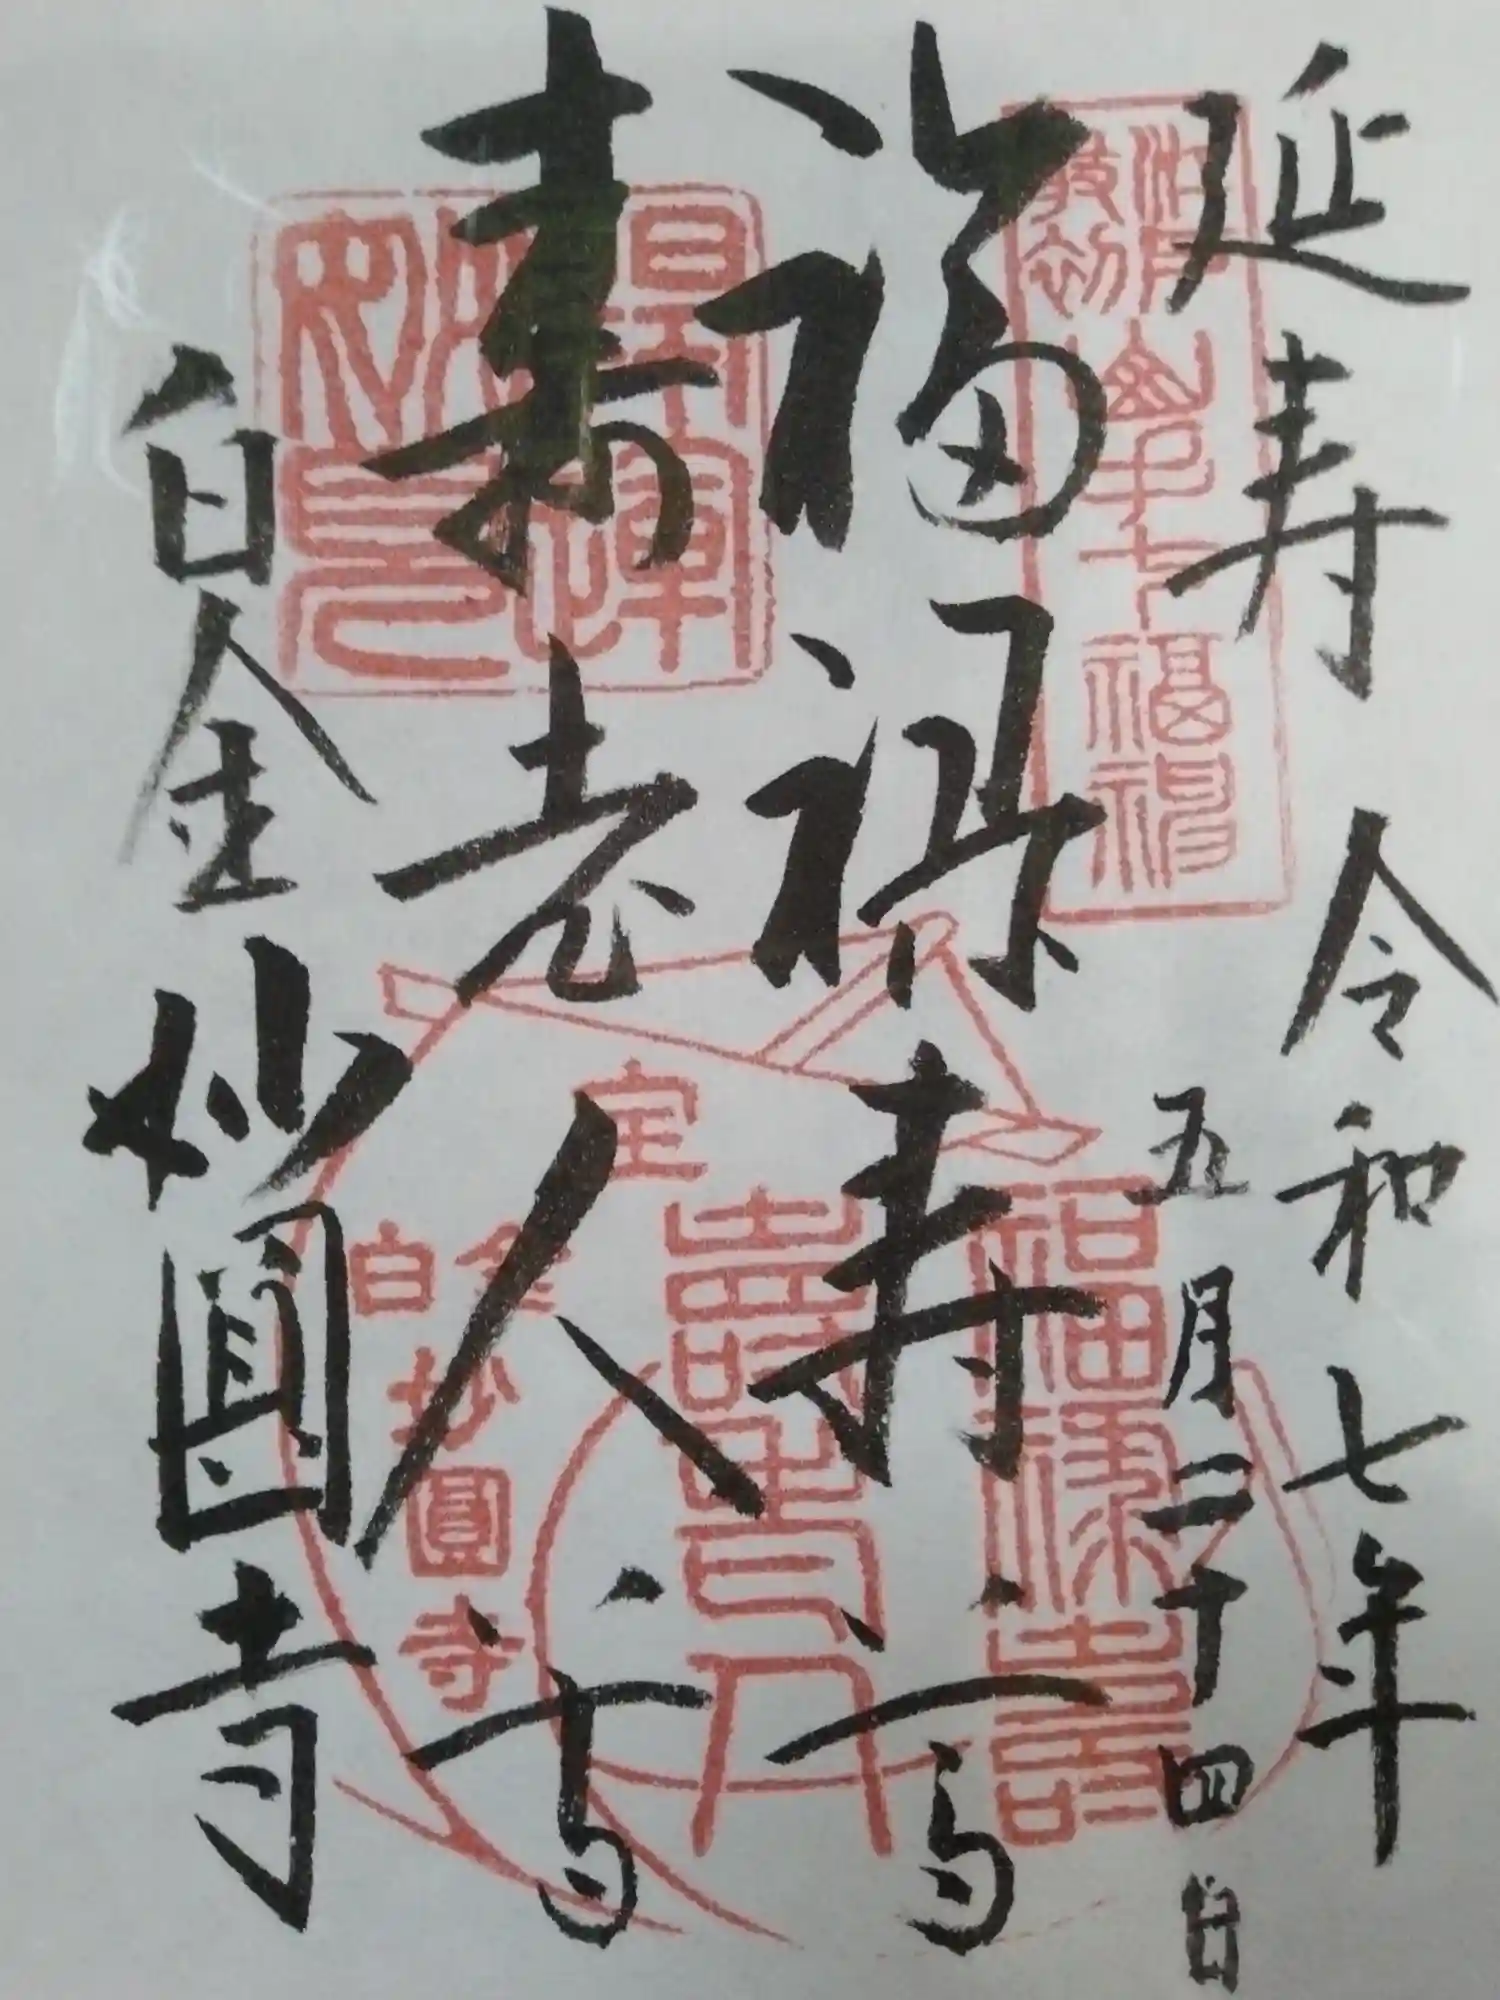 延寿
令和七年
五月二十四日
福禄寿尊
寿老人尊
白金 妙圓寺
山手七福神
福禄寿
寿老人
宝
白金
妙圓寺